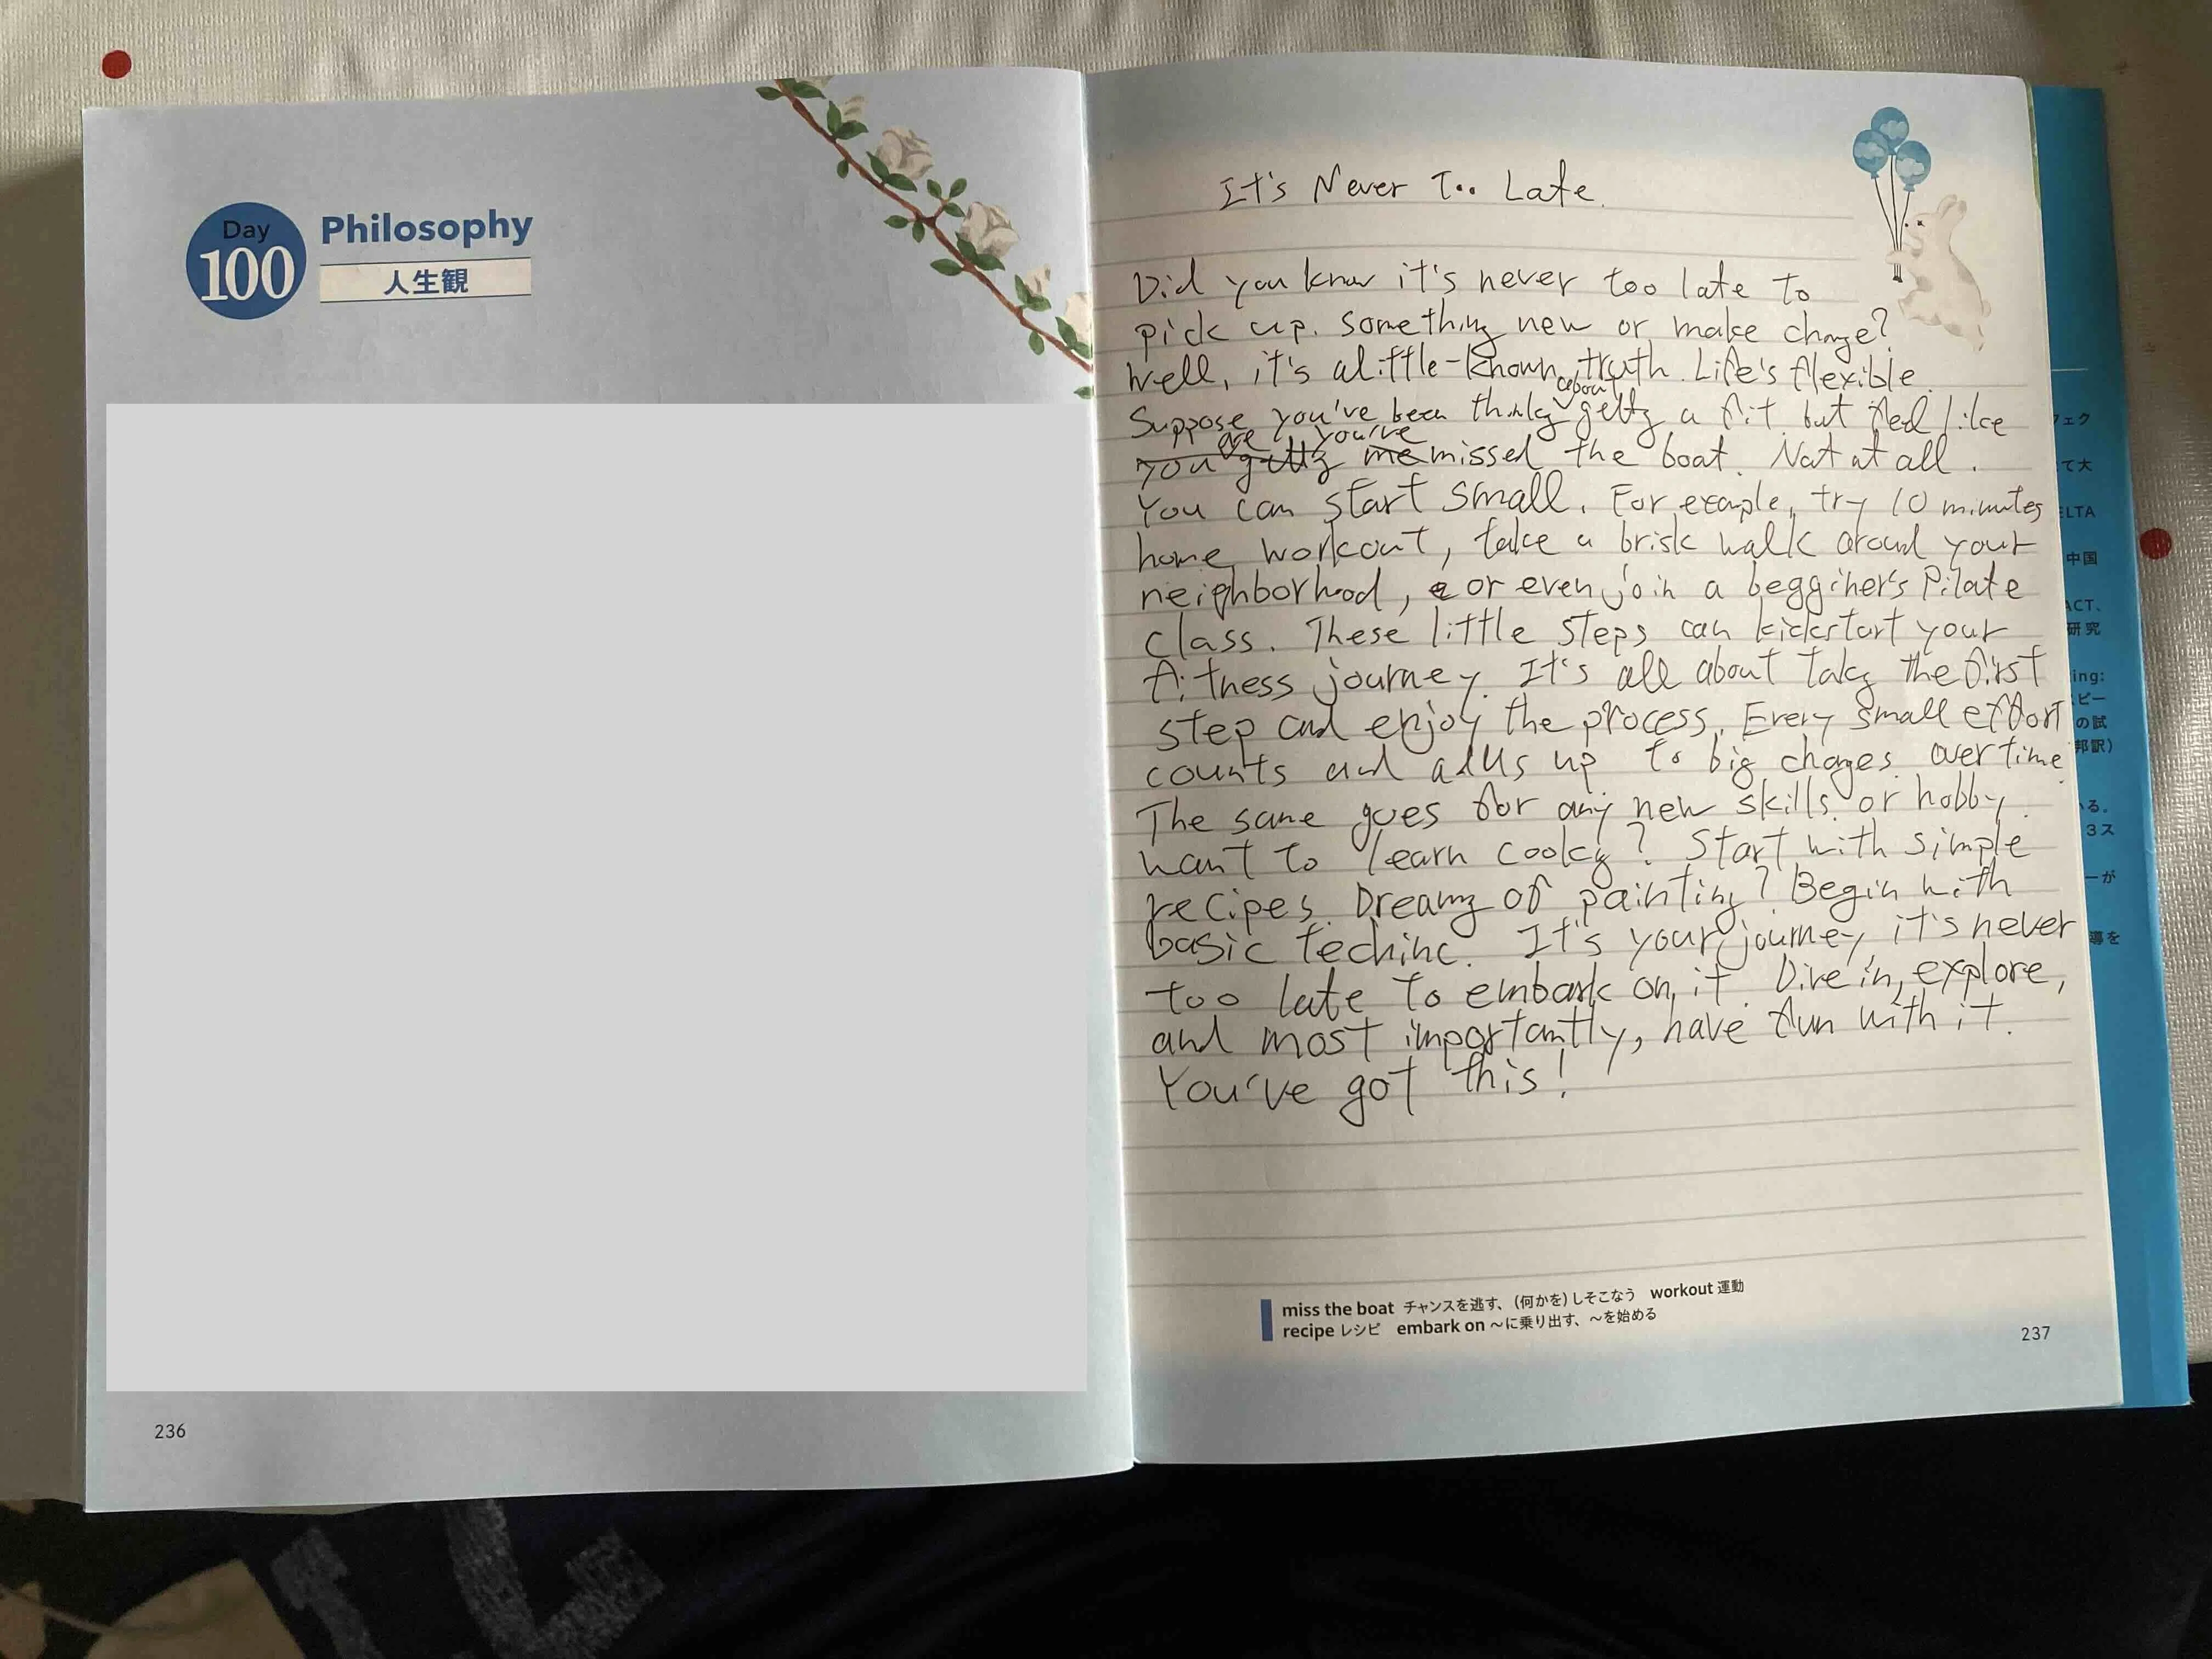 Day
100
Philosophy
人生観
236
It's Never Too Late.
Did you know it's never too late to
pick up. something new or make change?
Well, it's a little-known truth. Life's flexible.
Suppose you've been thinking about getting a fit but feel like
you are getting you've me missed the boat. Not at all.
You can start small. For example, try 10 minutes
home workout, take a brisk walk around your
neighborhood, or even join a begginer's Pilate
class. These little steps can kickstart your
fitness journey. It's all about taking the first
step and enjoy the process. Every small effort
counts and adds up to big changes over time.
The same goes for any new skills or hobby.
Want to learn cooking? Start with simple
recipes. Dreaming of painting? Begin with
basic techinc. It's your journey, it's never
too late to embark on it. Dive in, explore,
and most importantly, have fun with it.
You've got this!
miss the boat チャンスを逃す、(何かを)しそこなう workout 運動
recipe レシピ embark on ～に乗り出す、～を始める
237
ェク
て大
ELTA
中国
ACT、
研究
ing:
スピー
の試
邦訳)
いる。
3ス
ーが
導を